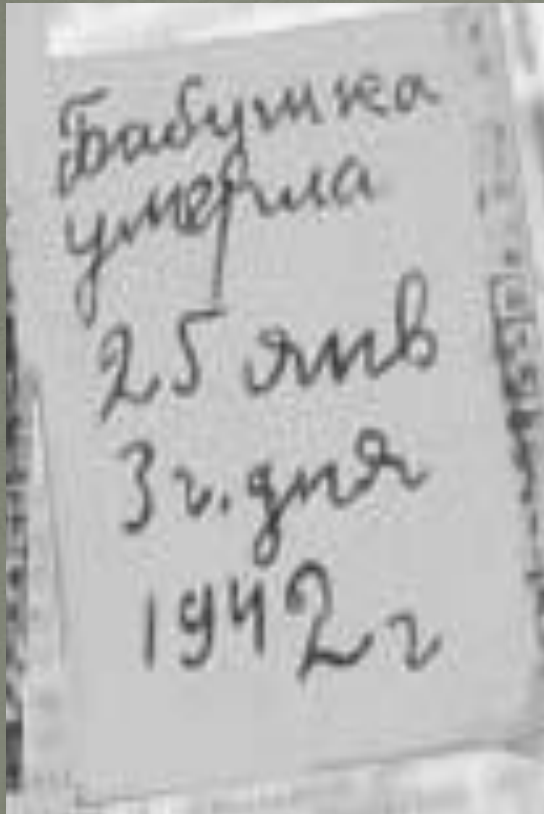 Бабушка
умерла
25 янв
3 ч. дня
1942 г